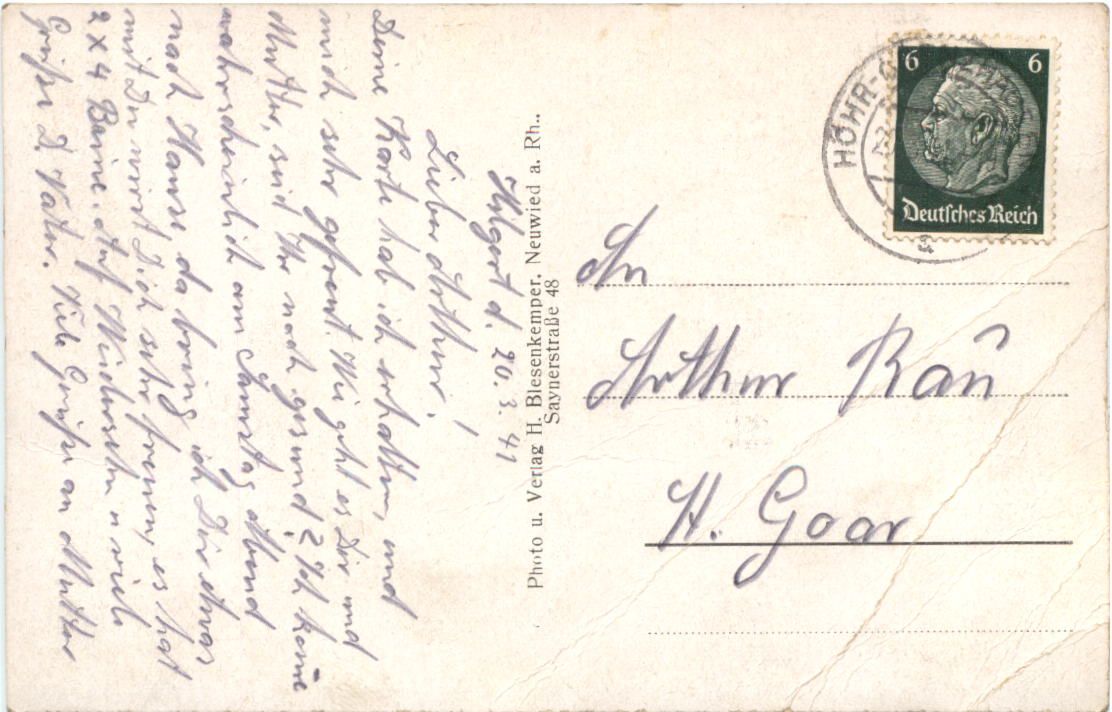 Hilgert d. 20.3.41
Lieber Arthur!
Deine Karte hab ich erhalten, und
mich sehr gefreut. Wie geht es Dir und
Mutter, seid Ihr noch gesund? Ich komme
wahrscheinlich am Samstag Abend
nach Hause, da bring ich Dir etwas
mit Du wirst Dich sehr freuen, es hat
2 x 4 Beine. Auf Wiedersehn u viele
Grüße D. Vater. Viele Grüße an Mutter
Photo u. Verlag H. Biesenkemper, Neuwied a. Rh..
Saynerstraße 48
6 6
Deutsches Reich
HÖHR-G
a
An
Arthur Rau
St. Goar